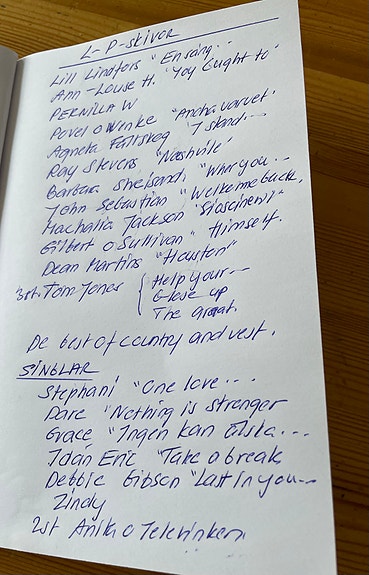 L-P-skivor
Lill Lindfors "En sång..
Ann-Louise H. "You Ought to"
PERNILLA W
Povel o Wenke "Andra varvet"
Agneta Fältskog "I stand...
Ray Stevens "Nashville"
Barbara Streisand, "When you...
John Sebastian "Welkome back,
Machalia Jackson
Gilbert o Sullivan "Himself.
Dean Martins "Houston"
3st. Tom Jones { Help your...
Close up
The great.
De best of country and vest.
SINGLAR
Stephani "One love...
Dare "Nothing is stronger
Grace "Ingen kan älska...
Idan Eric "Take a break
Debbie Gibson "Lost in you...
Zindy
2st Anika o Teletinken